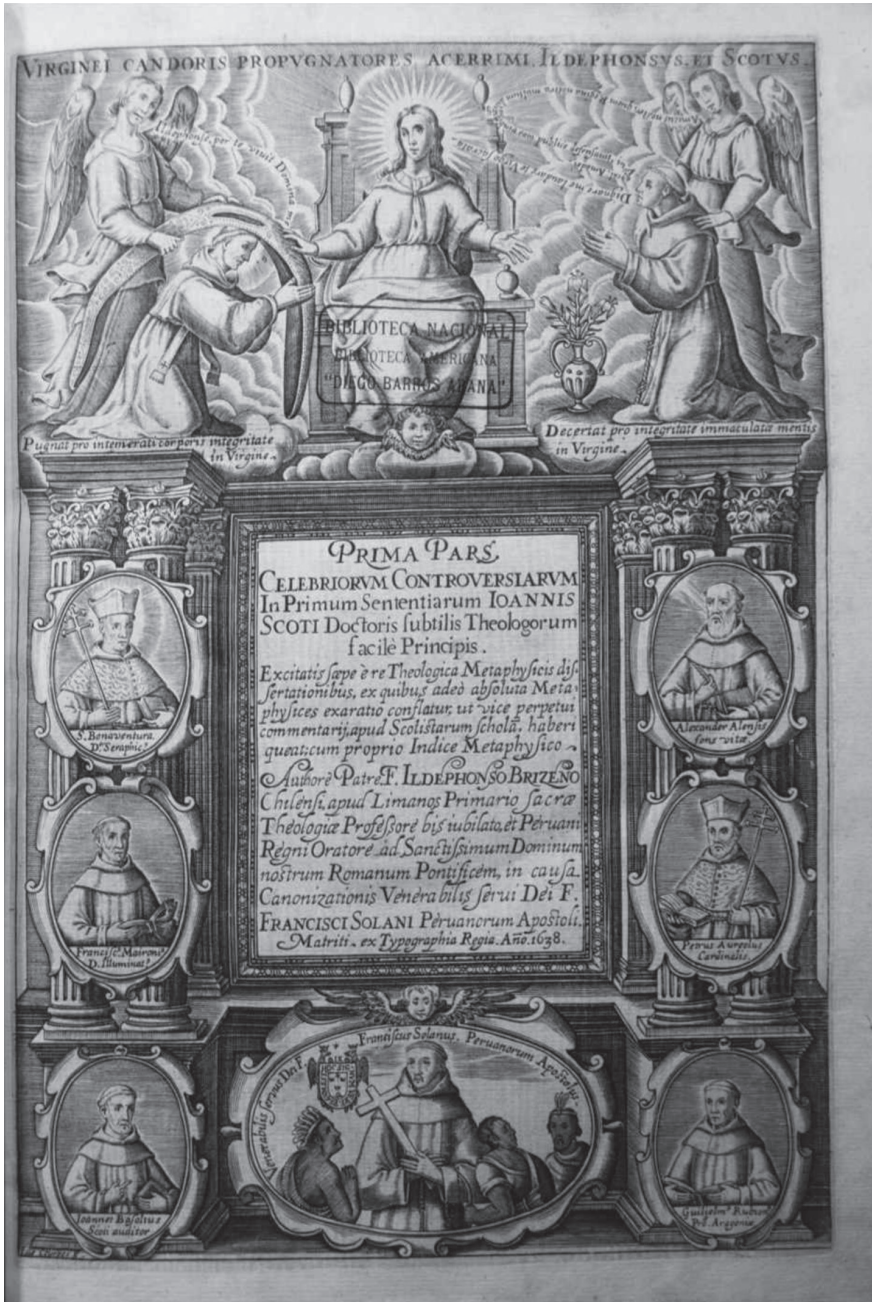 VIRGINEI CANDORIS PROPVGNATORES ACERRIMI, ILDEPHONSVS, ET SCOTVS.
Ildephonse, per te vivit Domina
Dignare me laudare te Virgo sacrata
BIBLIOTECA NACIONAL
BIBLIOTECA AMERICANA
"DIEGO BARROS ARANA"
Pugnat pro intemerati corporis integritate
in Virgine.
Decertat pro integritate immaculatæ mentis
in Virgine.
PRIMA PARS
CELEBRIORVM CONTROVERSIARVM
In Primum Sententiarum IOANNIS
SCOTI Doctoris subtilis Theologorum
facilè Principis.
Excitatis sæpe è re Theologica Metaphysicis dis-
sertationibus, ex quibus adeò absoluta Meta-
physices exaratio conflatur, ut vice perpetui
commentarij, apud Scotistarum scholã, haberi
queat; cum proprio Indice Metaphysico
Authore Patre F. ILDEPHONSO BRIZEÑO
Chilensi, apud Limanos Primario sacræ
Theologiæ Professore bis iubilato, et Peruani
Regni Oratore ad Sanctissimum Dominum
nostrum Romanum Pontificem, in causa
Canonizationis Venerabilis serui Dei F.
FRANCISCI SOLANI Peruanorum Apostoli.
Matriti. ex Typographia Regia. Año. 1638.
S. Bonaventura.
Dr. Seraphics.
Alexander Alensis
fons vitæ
Francisc9. Maironi9
D. Illuminat9.
Petrus Aureolus
Cardinalis.
Venerabilis servus Dei F. Franciscus Solanus, Peruanorum Apostolus.
Ioannes Basolius
Scoti auditor
Guilielm9 Rubion9
Pr.